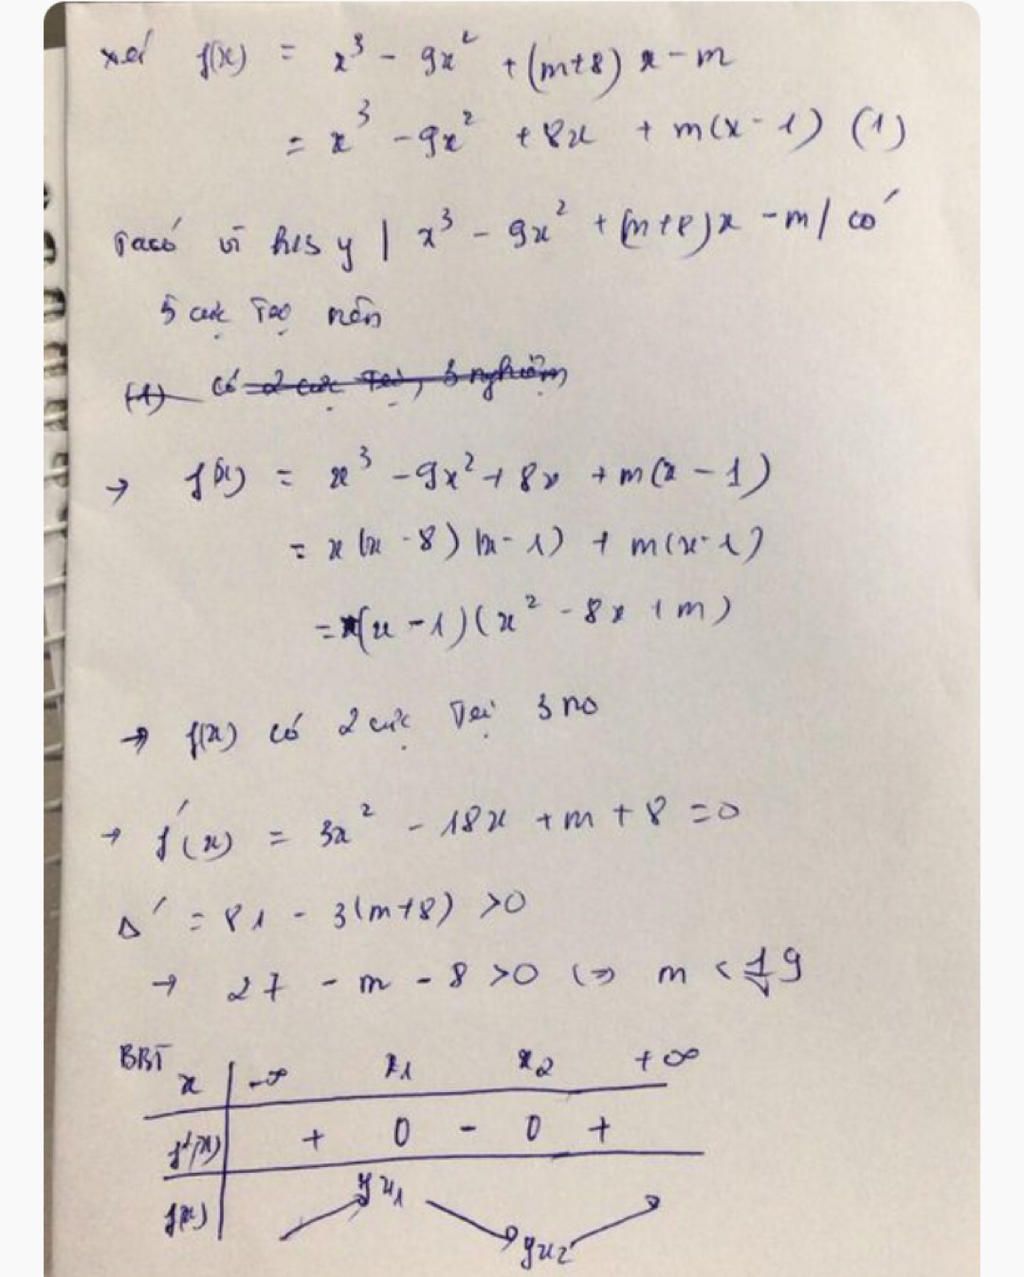 xét f(x) = x³ - 9x² + (m+8) x - m
= x³ - 9x² + 8x + m(x-1) (1)
Ta có vì h/s y | x³ - 9x² + (m+8)x - m | có
5 cực trị nên
(1) có 2 cực trị, 3 nghiệm
→ f(x) = x³ - 9x² + 8x + m(x-1)
= x(x-8)(x-1) + m(x-1)
= (x-1)(x² - 8x + m)
→ f(x) có 2 cực trị 3 no
→ f'(x) = 3x² - 18x + m + 8 = 0
Δ' = 81 - 3(m+8) >0
→ 27 - m - 8 >0 (=> m < 19
BBT
x -∞ x1 x2 +∞
f'(x) + 0 - 0 +
f(x) yx1 yx2